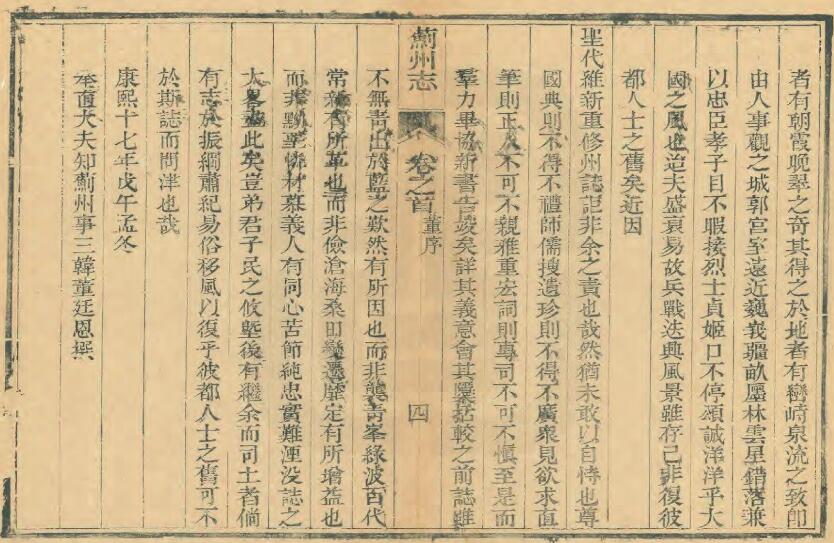 者有朝霞晚翠之奇其得之於地者有巒崎泉流之致卽
由人事觀之城郭宮室遠近巍峩疆畝廛林雲星錯落兼
以忠臣孝子目不暇接烈士貞姬口不停頌誠洋洋乎大
國之風也迨夫盛衰易故兵戰迭興風景雖存已非復彼
都人士之舊矣近因
聖代維新重修州誌詎非余之責也哉然猶未敢以自恃也尊
國典則不得不禮師儒搜遺珍則不得不廣衆見欲求直
筆則正人不可不親雅重宏詞則專司不可不愼至是而
羣力畢協新書告竣矣詳其義意會其隱括較之前誌雖
薊州志
卷之首
董序
四
不無靑出於藍之歎然有所因也而非襲靑峯綠波百代
常新有所革也而非儉滄海桑田變遷靡定有所增益也
而非黜聖恌材慕義人有同心苦節純忠實難湮没誌之
大畧 此矣豈弟君子民之攸塈後有繼余而司土者倘
有志於振綱肅紀易俗移風以復乎彼都人士之舊可不
於斯誌而問津也哉
康熙十七年戊午孟冬
奉直大夫知薊州事三韓董廷恩撰